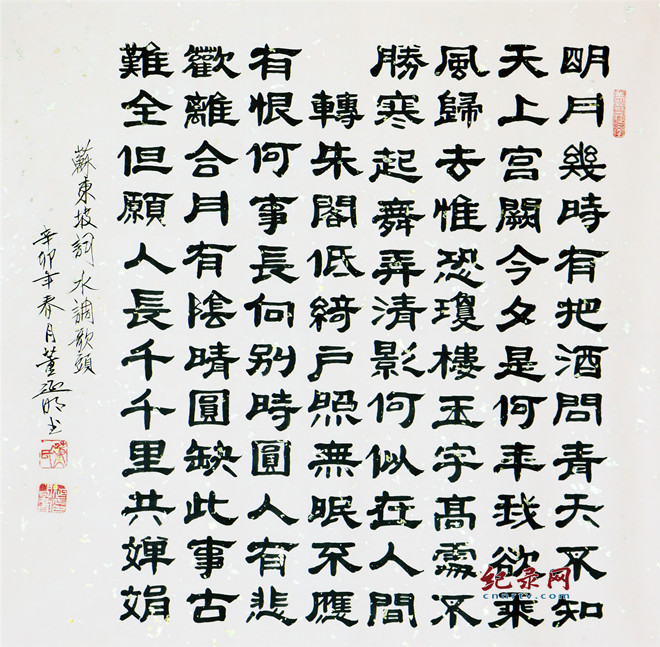 明月幾時有把酒問青天不知
天上宮闕今夕是何年我欲乘
風歸去惟恐瓊樓玉宇高處不
勝寒起舞弄清影何似在人間
轉朱閣低綺戶照無眠不應
有恨何事長向别時圓人有悲
歡離合月有陰晴圓缺此事古
難全但願人長千千里共嬋娟
蘇東坡詞水調歌頭
辛卯年春月董明书
纪录网